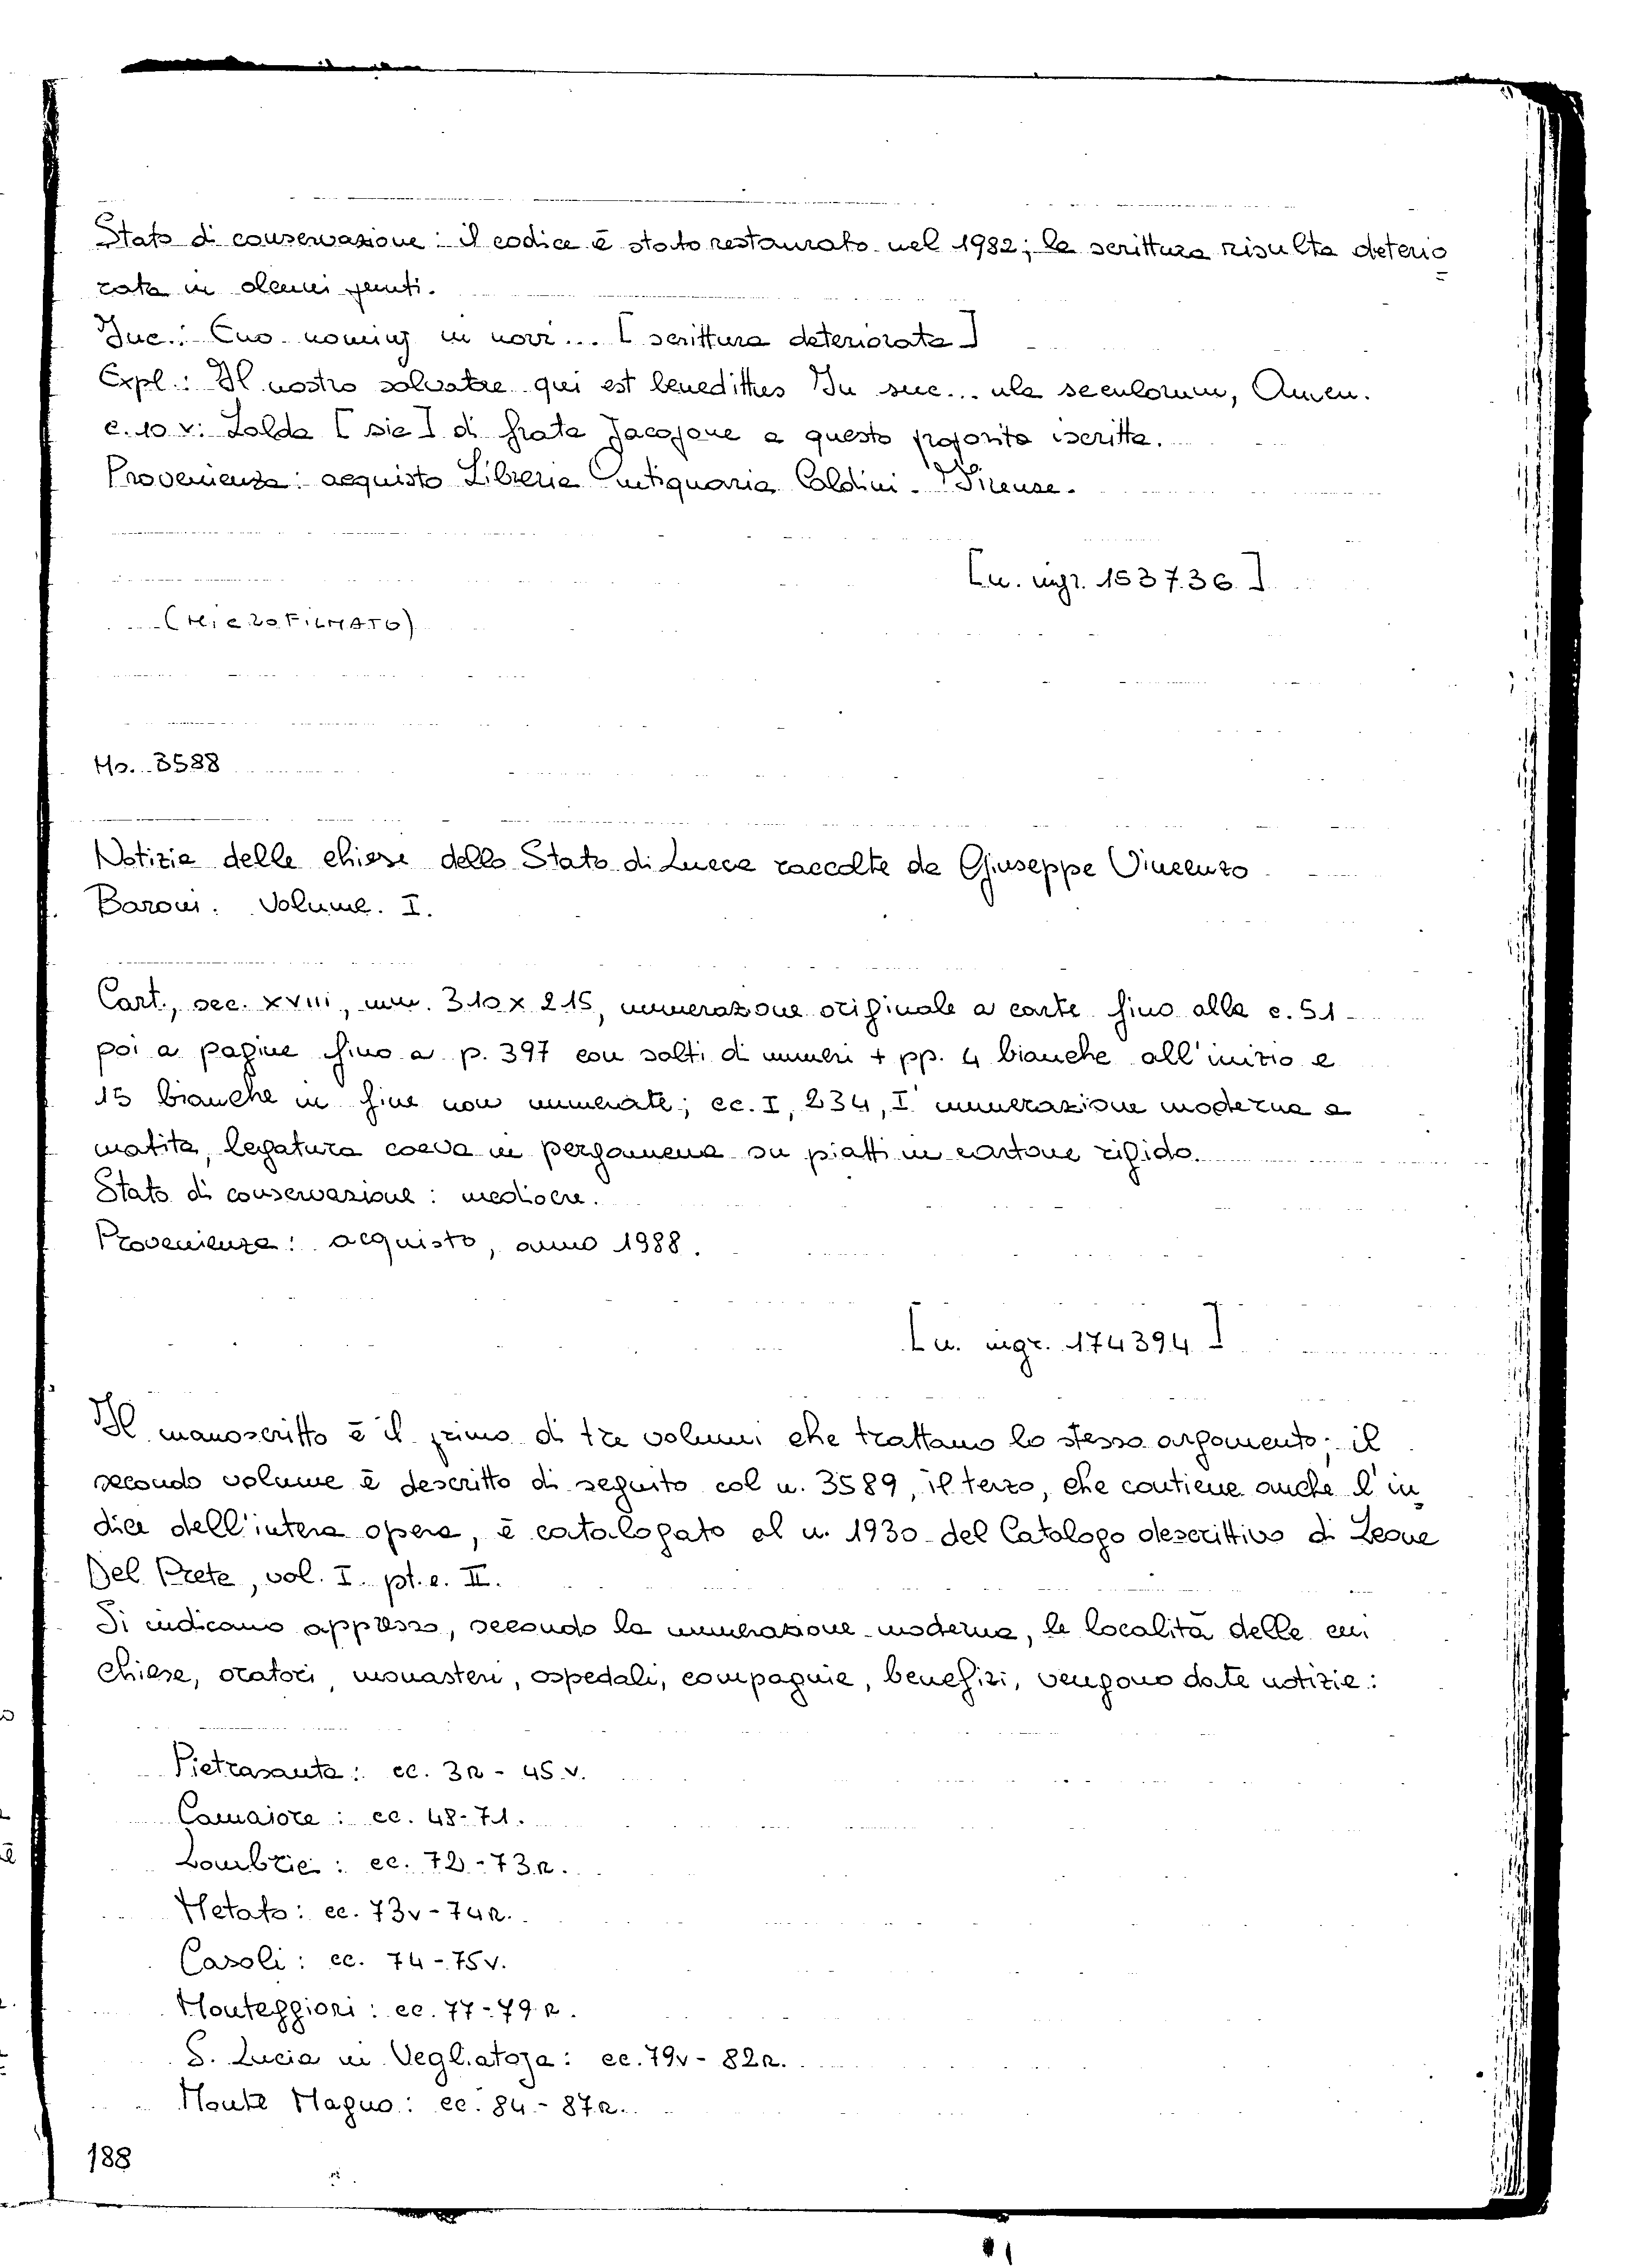 Stato di conservazione: il codice è stato restaurato nel 1982; la scrittura risulta deterio
rata in alcuni punti.
Inc.: Eno nominj in novi... [scrittura deteriorata]
Expl.: Il nostro salvatore qui est benedittus In suc... ula seculorum, Amen.
c. 10 v: Lalda [sic] di frate Jacopone a questo proposito iscritta.
Provenienza: acquisto Libreria Antiquaria Caldini - Firenze.
[n. ingr. 153736]
(MICROFILMATO)
Ms. 3588
Notizie delle chiese dello Stato di Lucca raccolte da Giuseppe Vincenzo
Baroni. Volume. I.
Cart., sec. XVIII, mm. 310 x 215, numerazione originale a carte fino alla c. 51
poi a pagine fino a p. 397 con salti di numeri + pp. 4 bianche all'inizio e
15 bianche in fine non numerate; cc. I, 234, I' numerazione moderna a
matita, legatura coeva in pergamena su piatti in cartone rigido.
Stato di conservazione: mediocre.
Provenienza: acquisto, anno 1988.
[n. ingr. 174394]
Il manoscritto è il primo di tre volumi che trattano lo stesso argomento; il
secondo volume è descritto di seguito col n. 3589, il terzo, che contiene anche l'in
dice dell'intera opera, è catalogato al n. 1930 del Catalogo descrittivo di Leone
Del Prete, vol. I. pt.e. II.
Si indicano appresso, secondo la numerazione moderna, le località delle cui
chiese, oratori, monasteri, ospedali, compagnie, benefizi, vengono date notizie:
Pietrasanta: cc. 3r - 45v.
Camaiore: cc. 48-71.
Lombrici: cc. 72-73r.
Metato: cc. 73v-74r.
Casoli: cc. 74-75v.
Monteggiori: cc. 77-79r.
S. Lucia in Vegliatoja: cc. 79v-82r.
Monte Magno: cc. 84-87r.
188